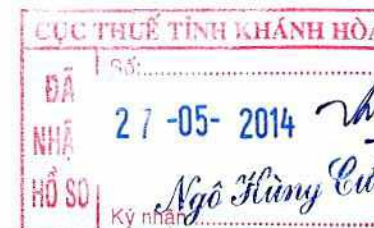 CỤC THUẾ TỈNH KHÁNH HÒA
Số:
ĐÃ
NHẬ
HỒ SƠ
27-05-2014
Ngô Hùng Cư
Ký nhận